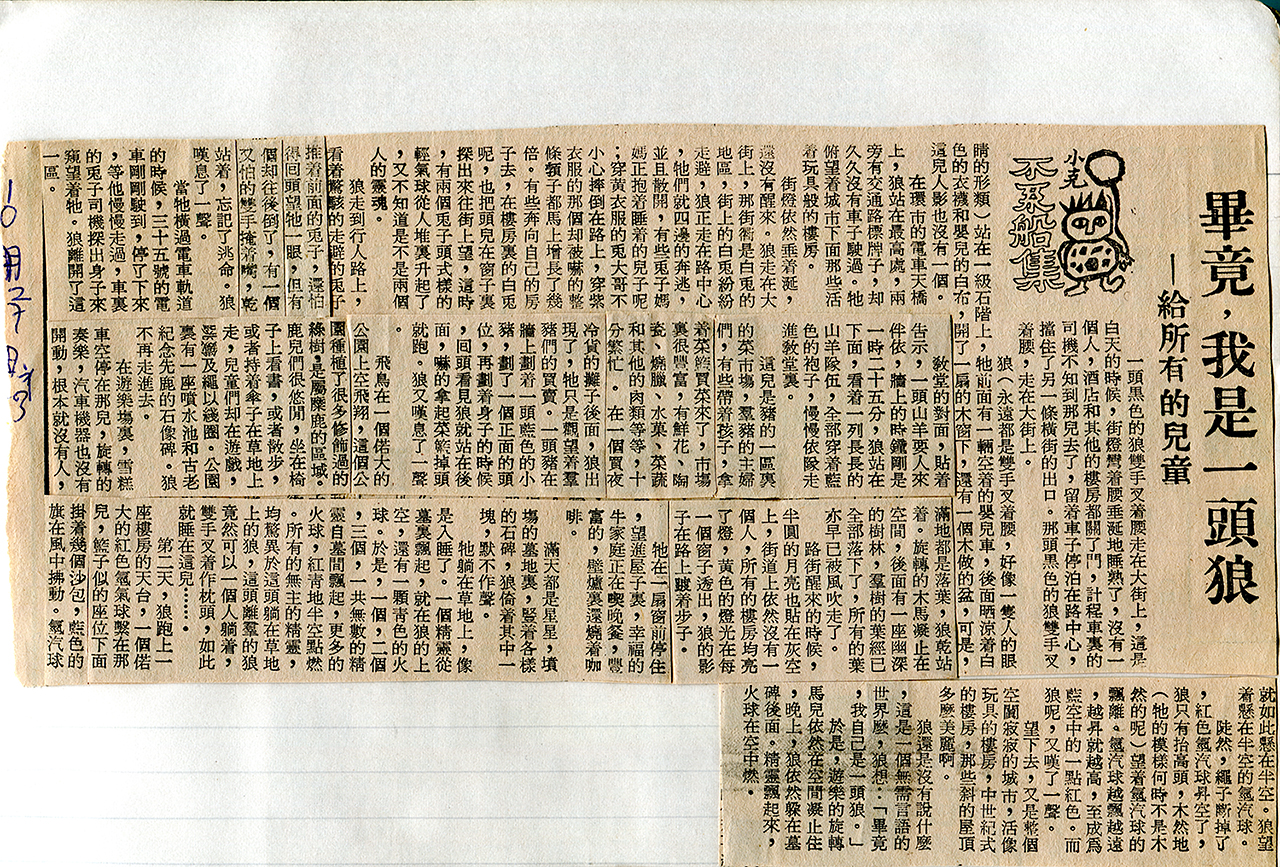 畢竟，我是一頭狼
—給所有的兒童
小克
不系船集
一頭黑色的狼雙手叉着腰走在大街上，這是
白天的時候，街燈彎着腰垂涎地睡熟了，沒有一
個人，酒店和其他的樓房都關了門，計程車裏的
司機不知到那兒去了，留着車子停泊在路中心，
擋住了另一條橫街的出口。那頭黑色的狼雙手叉
着腰，走在大街上。
狼（永遠都是雙手叉着腰，好像一隻人的眼
睛的形類）站在一級石階上，牠前面有一輛空着的嬰兒車，後面晒涼着白
色的衣襪和嬰兒的白布，開了一扇的木窗下，還有一個木做的盆，可是，
這兒人影也沒有一個。
在環市的電車天橋
上，狼站在最高處，兩
旁有交通路標牌子，却
久久沒有車子駛過。牠
俯望着城市下面那些活
着玩具般的樓房。
街燈依然垂着涎，
還沒有醒來。狼走在大
街上，那街衖是白兎的
地區，街上的白兎紛紛
走避，狼正走在路中心
，牠們就四邊的奔逃，
並且散開，有些兎子媽
媽正抱着睡着的兒子呢
；穿黃衣服的兎大哥不
小心摔倒在路上，穿紫
衣服的那個却被嚇的整
條頸子都馬上增長了幾
倍。有些奔向自己的房
子去，在樓房裏的白兎
呢，也把頭兒在窗子裏
探出來往街上望，這時
，有兩個兎子頭式樣的
輕氣球從人堆裏升起了
，又不知道是不是兩個
人的靈魂。
狼走到行人路上，
看着驚駭的走避的兎子
推着前面的兎子，還怕
得回頭望牠一眼，但有
個却往後倒了，有一個
又怕的雙手掩着嘴，乾
站着，忘記了逃命。狼
嘆息了一聲。
當牠橫過電車軌道
的時候，三十五號的電
車剛剛駛到，停了下來
，等他慢慢走過，車裏
的兎子司機探出身子來
窺望着牠。狼離開了這
一區。
敎堂的對面，貼着
告示，一頭山羊要人來
伴依，牆上的時鐘剛是
一時二十五分，狼站在
下面，看着一列長長的
山羊隊伍，全部穿着藍
色的袍子，慢慢依隊走
進敎堂裏。
這兒是豬的一區裏
的菜市塲，羣豬的主婦
們，有些帶着孩子，拿
着菜籃買菜來了，市塲
裏很豐富，有鮮花、陶
瓷、燒臘、水菓、菜蔬
和其他的肉類等等，十
分繁忙。在一個賣夜
冷貨的攤子後面，狼出
現了，牠只是觀望着羣
豬們的買賣。一頭豬在
牆上劃着一頭藍色的小
豬，劃了一個正面的頭
位，再劃着身子的時候
，回頭看見狼就站在後
面，嚇的拿起菜籃掉頭
就跑。狼又嘆息了一聲
。
飛鳥在一個偌大的
公園上空飛翔，這個公
園種種了很多修飾過的
綠樹，是屬麋鹿的區域。
鹿兒們很悠閒，坐在椅
子上看書，或者散步，
或者持着傘子在草地上
走，兒童們却在遊戲，
耍籐及繩以綫圈。公園
裏有一座噴水池和古老
紀念先鹿的石像碑。狼
不再走進去。
在遊樂塲裏，雪糕
車空停在那兒，旋轉的
奏樂，汽車機器也沒有
開動，根本就沒有人，
滿地都是落葉，狼乾站
着。旋轉的木馬凝止在
空間，後面有一座幽深
的樹林，羣樹的葉經已
全部落下了，所有的葉
亦早已被風吹走了。
路街醒來的時候，
半圓的月亮也貼在灰空
上，街道上依然沒有一
個人，所有的樓房均亮
了燈，黃色的燈光在每
一個窗子透出，狼的影
子在路上踱着步子。
牠在一扇窗前停住
，望進屋子裏，幸福的
牛家庭正在喫晚餐，豐
富的，壁爐裏還燒着咖
啡。
滿天都是星星，墳
塲的墓地裏，豎着各樣
的石碑，狼倚着其中一
塊，默不作聲。
牠躺在草地上，像
是入睡了。一個精靈從
墓裏飄起，就在狼的上
空，還有一顆青色的火
球。於是，一個，二個
，三個，一共無數的精
靈自墓間飄起，更多的
火球，紅青地半空點燃
。所有的無主的精靈，
均驚異於這頭躺在草地
上的狼，這頭離羣的狼
竟然可以一個人躺着，
雙手叉着作枕頭，如此
就睡在這兒……。
第二天，狼跑上一
座樓房的天台，一個偌
大的紅色氫氣球繫在那
兒，籃子似的座位下面
掛着幾個沙包，藍色的
旗在風中拂動。氫汽球
就如此懸在半空。狼望
着懸在半空的氫汽球。
陡然，繩子斷掉了
，紅色氫汽球昇空了，
狼只有抬高頭，木然地
（牠的模樣何時不是木
然的呢）望着氫汽球的
飄離。氫汽球越飄越遠
，越昇就越高，至成爲
藍空中的一點紅色。而
狼呢，又嘆了一聲。
望下去，又是整個
空闃寂寂的城市，活像
玩具的樓房，中世紀式
的樓房，那些斜的屋頂
多麽美麗啊。
狼還是沒有說什麽
，這是一個無需言語的
世界麽，狼想：「畢竟
，我自己是一頭狼。」
於是，遊樂的旋轉
馬兒依然在空間凝止住
，晚上，狼依然躲在墓
碑後面。精靈飄起來，
火球在空中燃。
10月27日